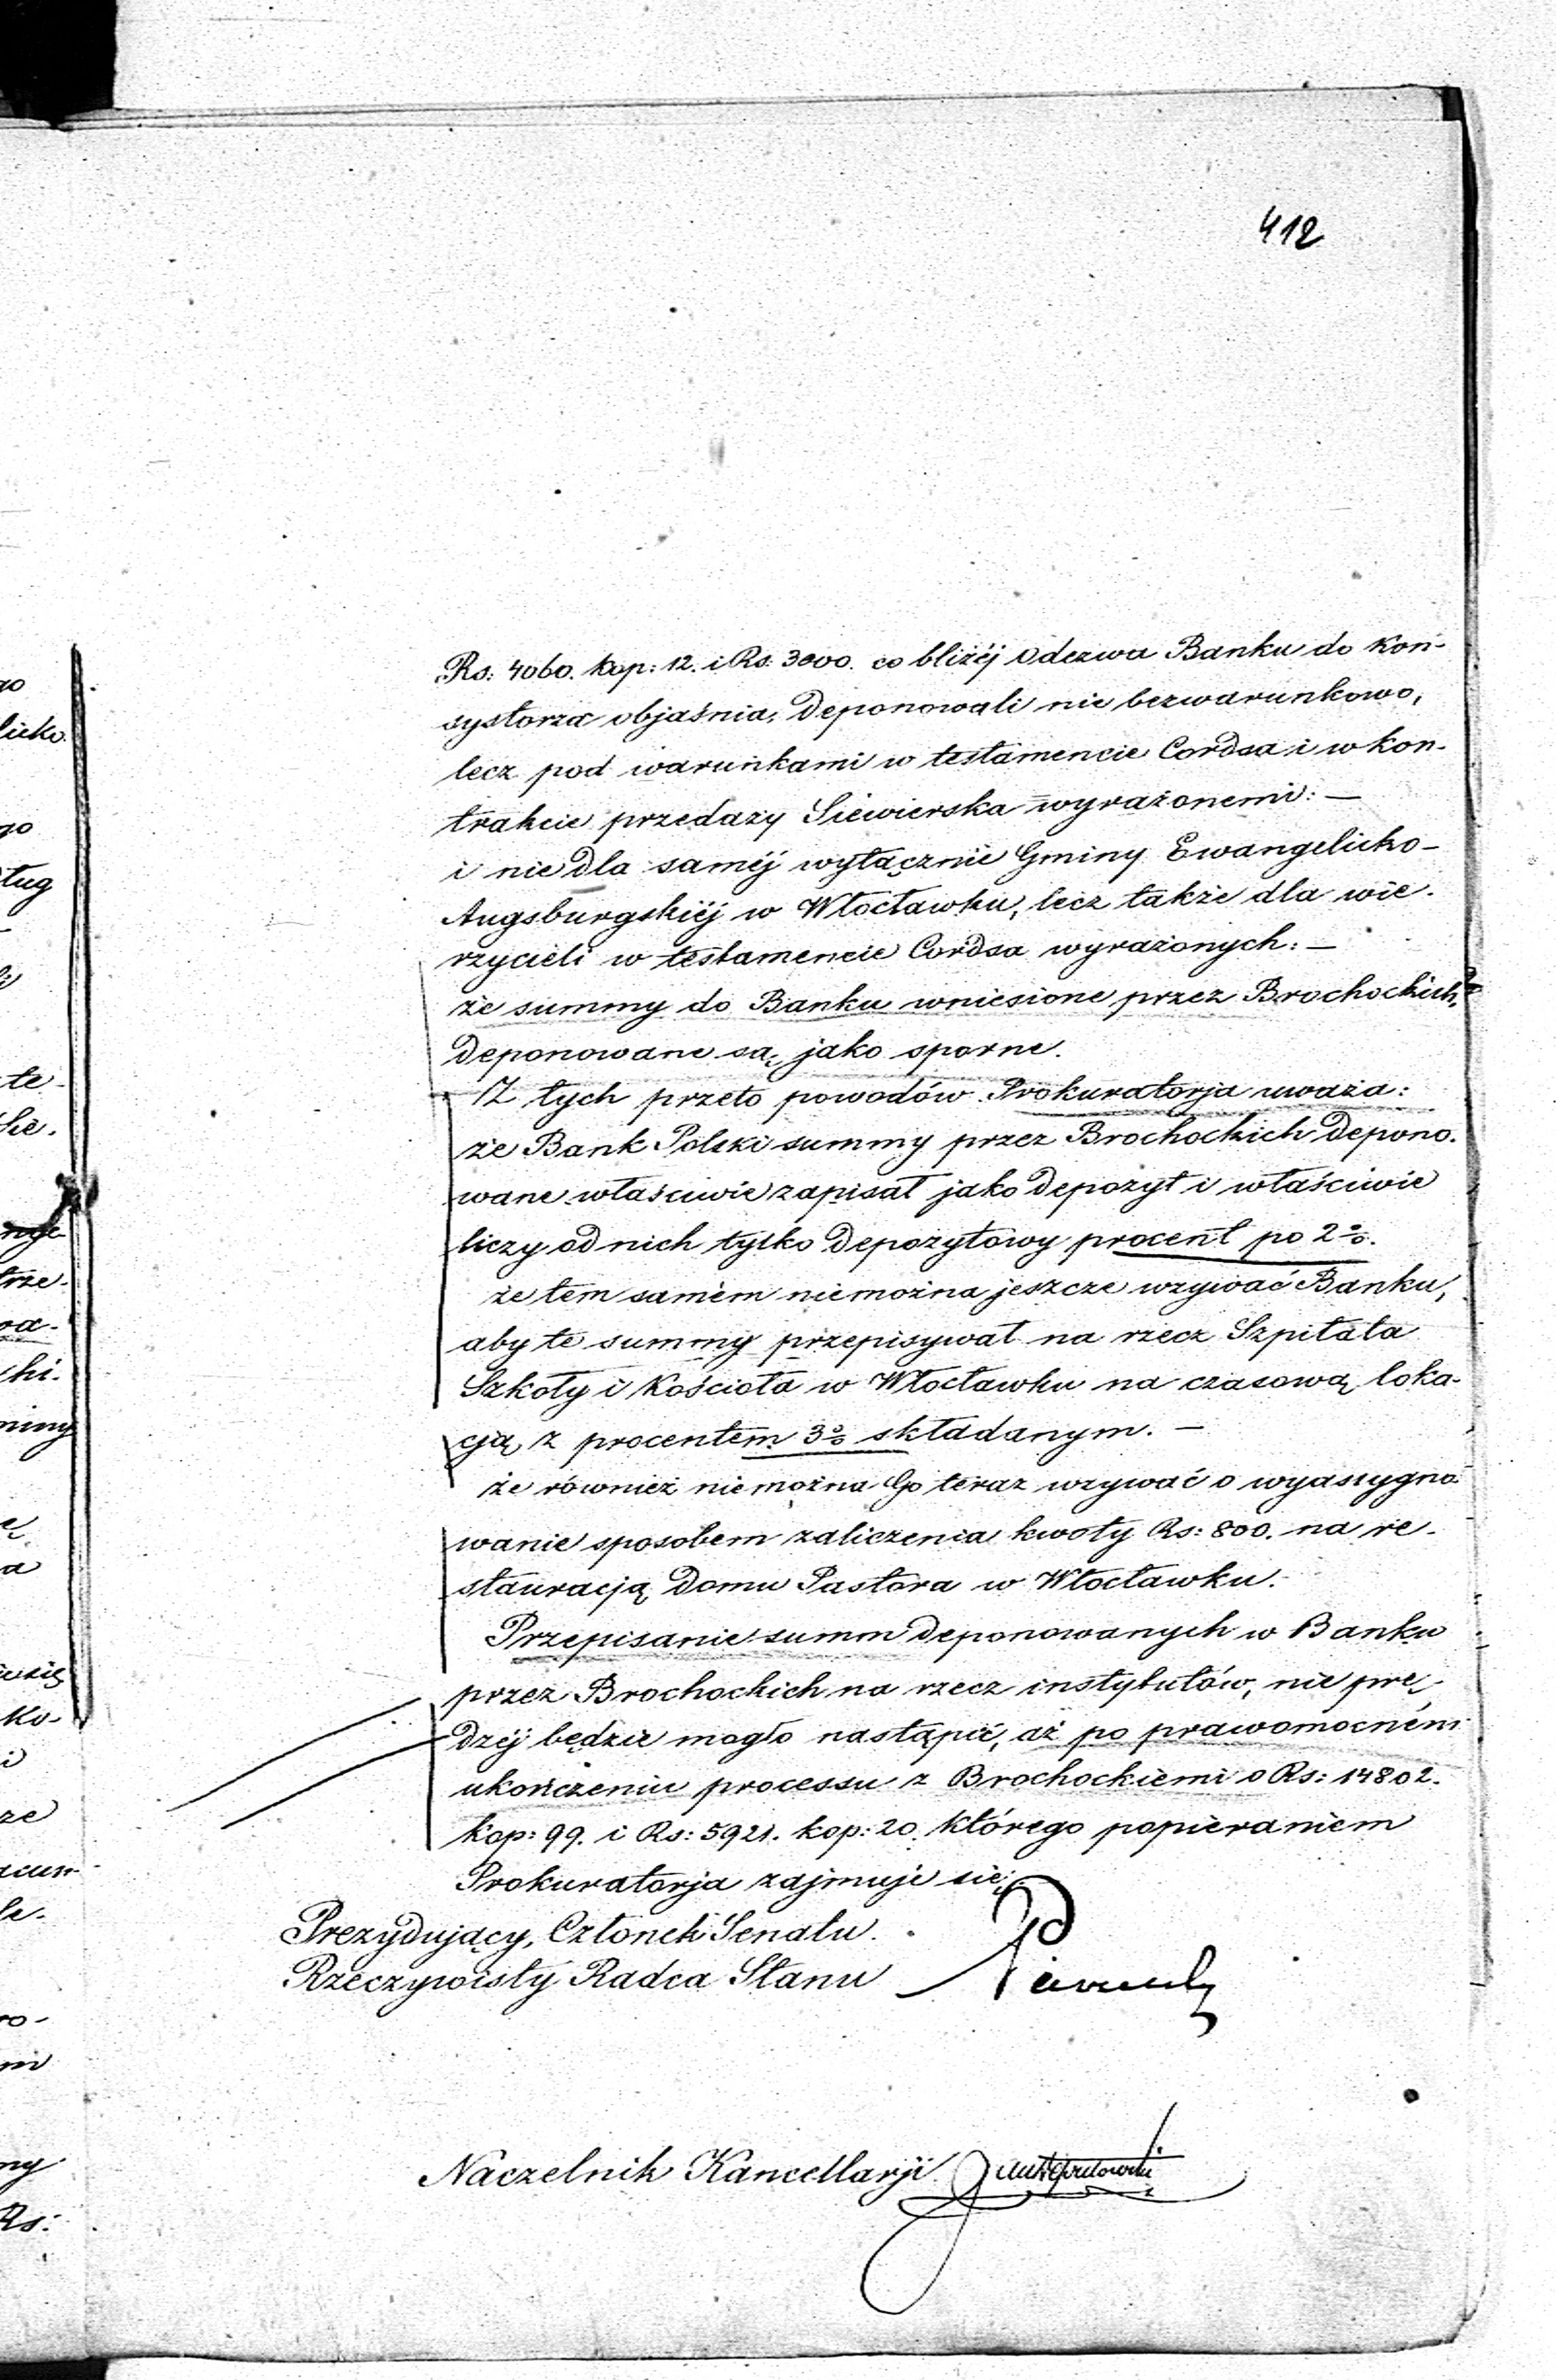 412
Rs: 4060. kop: 12. i Rs: 3000. co bliżéj Odezwa Banku do Kon-
systorza objaśnia, deponowali nie bezwarunkowo,
lecz pod warunkami w testamencie Cordsa i w kon-
trakcie przedaży Siewierska wyrażonemi: —
i nie dla saméj wyłącznie Gminy Ewangelicko-
Augsburgskiéj w Włocławku, lecz także dla wie-
rzycieli w testamencie Cordsa wyrażonych: —
że summy do Banku wniesione przez Brochockich,
deponowane są jako sporne.
Z tych przeto powodów Prokuratorja uważa:
że Bank Polski summy przez Brochockich depono-
wane właściwie zapisał jako depozyt i właściwie
liczy od nich tylko depozytowy procent po 2%.
że tem samém niemożna jeszcze wzywać Banku,
aby te summy przepisywał na rzecz Szpitala
Szkoły i Kościoła w Włocławku na czasową loka-
cją z procentem 3% składanym. —
że również niemożna Go teraz wzywać o wyassygno-
wanie sposobem zaliczenia kwoty Rs: 800. na re-
stauracją domu Pastora w Włocławku.
Przepisanie summ deponowanych w Banku
przez Brochockich na rzecz instytutów, nie prę-
dzéj będzie mogło nastąpić, aż po prawomocném
ukończeniu processu z Brochockiemi o Rs: 14802.
kop: 99. i Rs: 5921. kop: 20. którego popieraniem
Prokuratorja zajmuje się.
Prezydujący, Członek Senatu.
Rzeczywisty Radca Stanu
Naczelnik Kancellarji